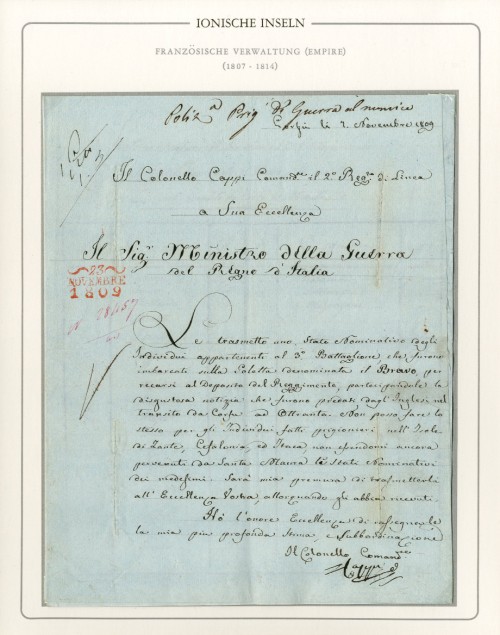 IONISCHE INSELN
FRANZÖSISCHE VERWALTUNG (EMPIRE)
(1807 - 1814)
Prig. Di Guerra al nemico
Corfù li 7. Novembre 1809
Il Colonello Cappi Command.te il 2.o Regg.to di Linea
a Sua Eccellenza
Il Sig.r Ministro Della Guerra
del Regno d'Italia
23
NOVEMBRE
1809
Le trasmetto uno Stato Nominativo degli
Individui appartenenti al 3.o Battaglione, che furono
imbarcati sulla Poletta denominata il Bravo, per
recarsi al Deposito del Reggimento, partecipandole la
disgustosa notizia che furono predati dagl'Inglesi nel
transito da Corfu ad Ottranto. Non posso fare lo
stesso per gl'Individui fatti prigionieri nell'Isole
di Zante, Cefalonia, ed Itaca, non essendomi ancora
pervenuti da Santa Maura lo Stato Nominativi
dei medesimi. Sarà mia premura di trasmetterli
all'Eccellenza Vostra, allorquando gli abbia ricevuti.
Hò l'onore Eccellenza di rassegnarle
la mia più profonda stima, e Subbordinazione
Il Colonello Comand.te
Cappi